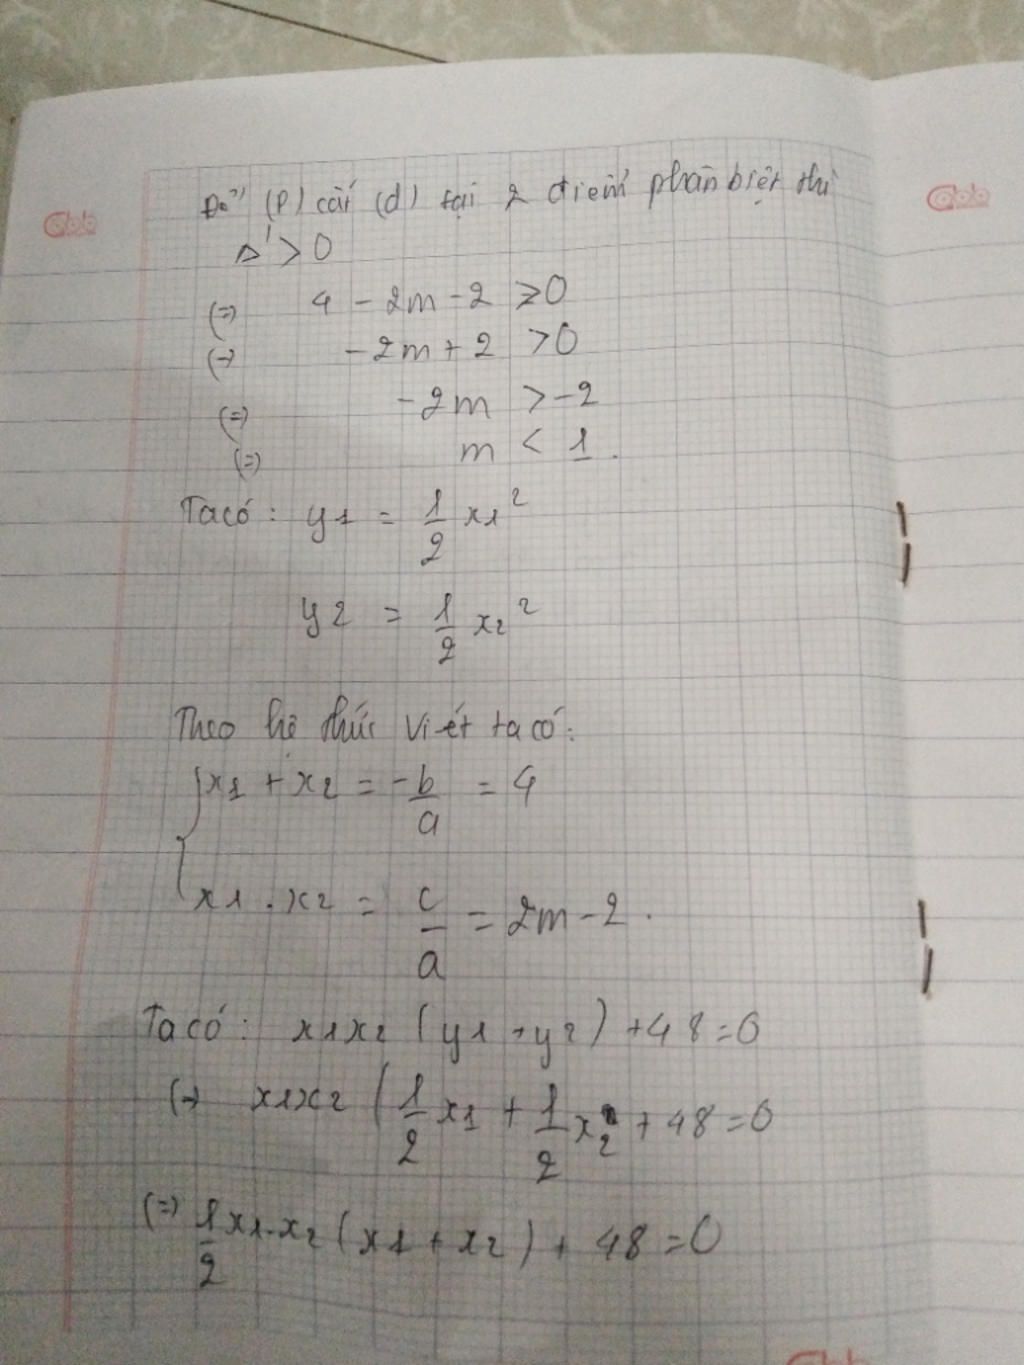 Để (P) cắt (d) tại 2 điểm phân biệt thì
Δ' > 0
(=) 4 - 2m - 2 > 0
(=) -2m + 2 > 0
(=) -2m > -2
(=) m < 1.
Ta có: y1 = 1/2 x1²
y2 = 1/2 x2²
Theo hệ thức Vi-ét ta có:
{ x1 + x2 = -b/a = 4
x1 . x2 = c/a = 2m - 2.
Ta có: x1x2 (y1 + y2) + 48 = 0
(=) x1x2 (1/2 x1 + 1/2 x2 + 48 = 0
(=) 1/2 x1.x2 (x1 + x2) + 48 = 0